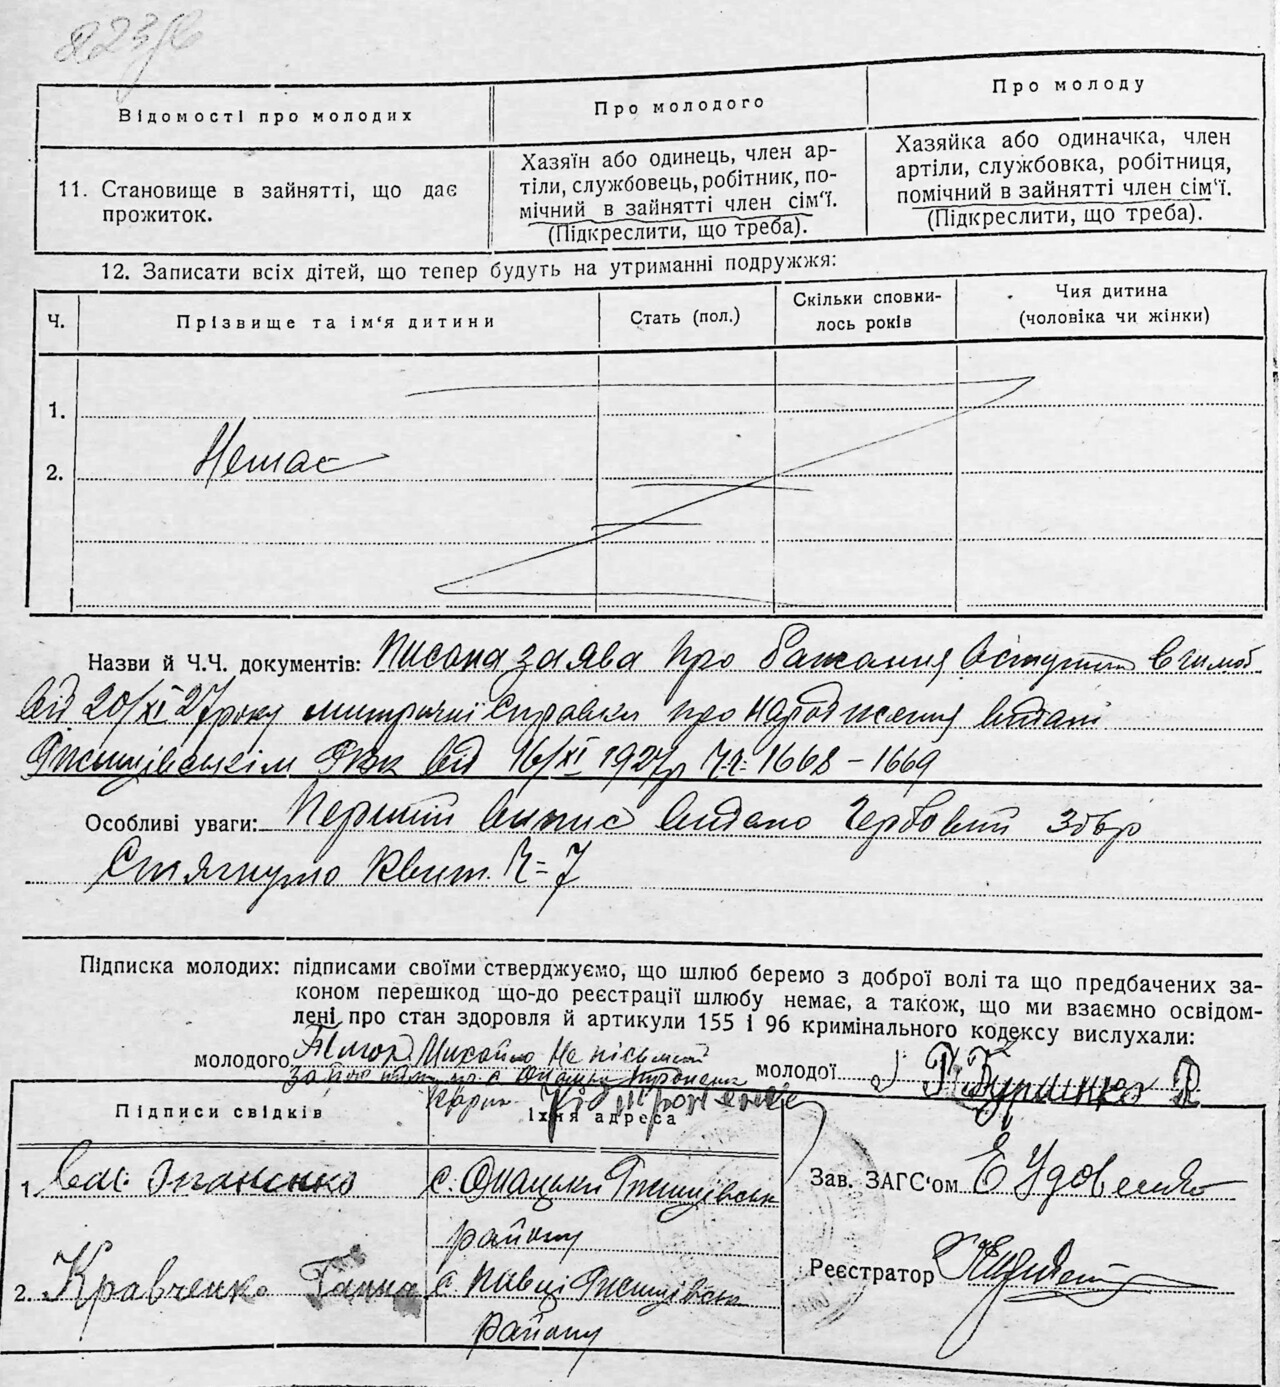 823/6
Відомості про молодих
Про молодого
Про молоду
11. Становище в зайнятті, що дає
прожиток.
Хазяїн або одинець, член ар-
тіли, службовець, робітник, по-
мічний в зайнятті член сім'ї.
(Підкреслити, що треба).
Хазяйка або одиначка, член
артіли, службовка, робітниця,
помічний в зайнятті член сім'ї.
(Підкреслити, що треба).
12. Записати всіх дітей, що тепер будуть на утриманні подружжя:
Ч.
Прізвище та ім'я дитини
Стать (пол.)
Скільки сповни-
лось років
Чия дитина
(чоловіка чи жінки)
1.
2. Немає
Назви й Ч.Ч. документів: Писана заява про бажання вступити в шлюб
від 20/XI 27 року метричні справки про народження видані
РВК від 16/XI 1927 р ч.ч. 1668-1669
Особливі уваги: Перший випис видано Гербовий збір
Стягнуто квит. Ч=7
Підписка молодих: підписами своїми стверджуємо, що шлюб беремо з доброї волі та що предбачених за-
коном перешкод що-до реєстрації шлюбу немає, а також, що ми взаємно освідом-
лені про стан здоровля й артикули 155 і 96 кримінального кодексу вислухали:
молодого Михайло Не письмений
молодої
Підписи свідків
Їхня адреса
1. Опанченко
с. Опацьки
району
2. Кравченко Ганна
с. Півці
району
Зав. ЗАГС'ом Е Удовенко
Реєстратор